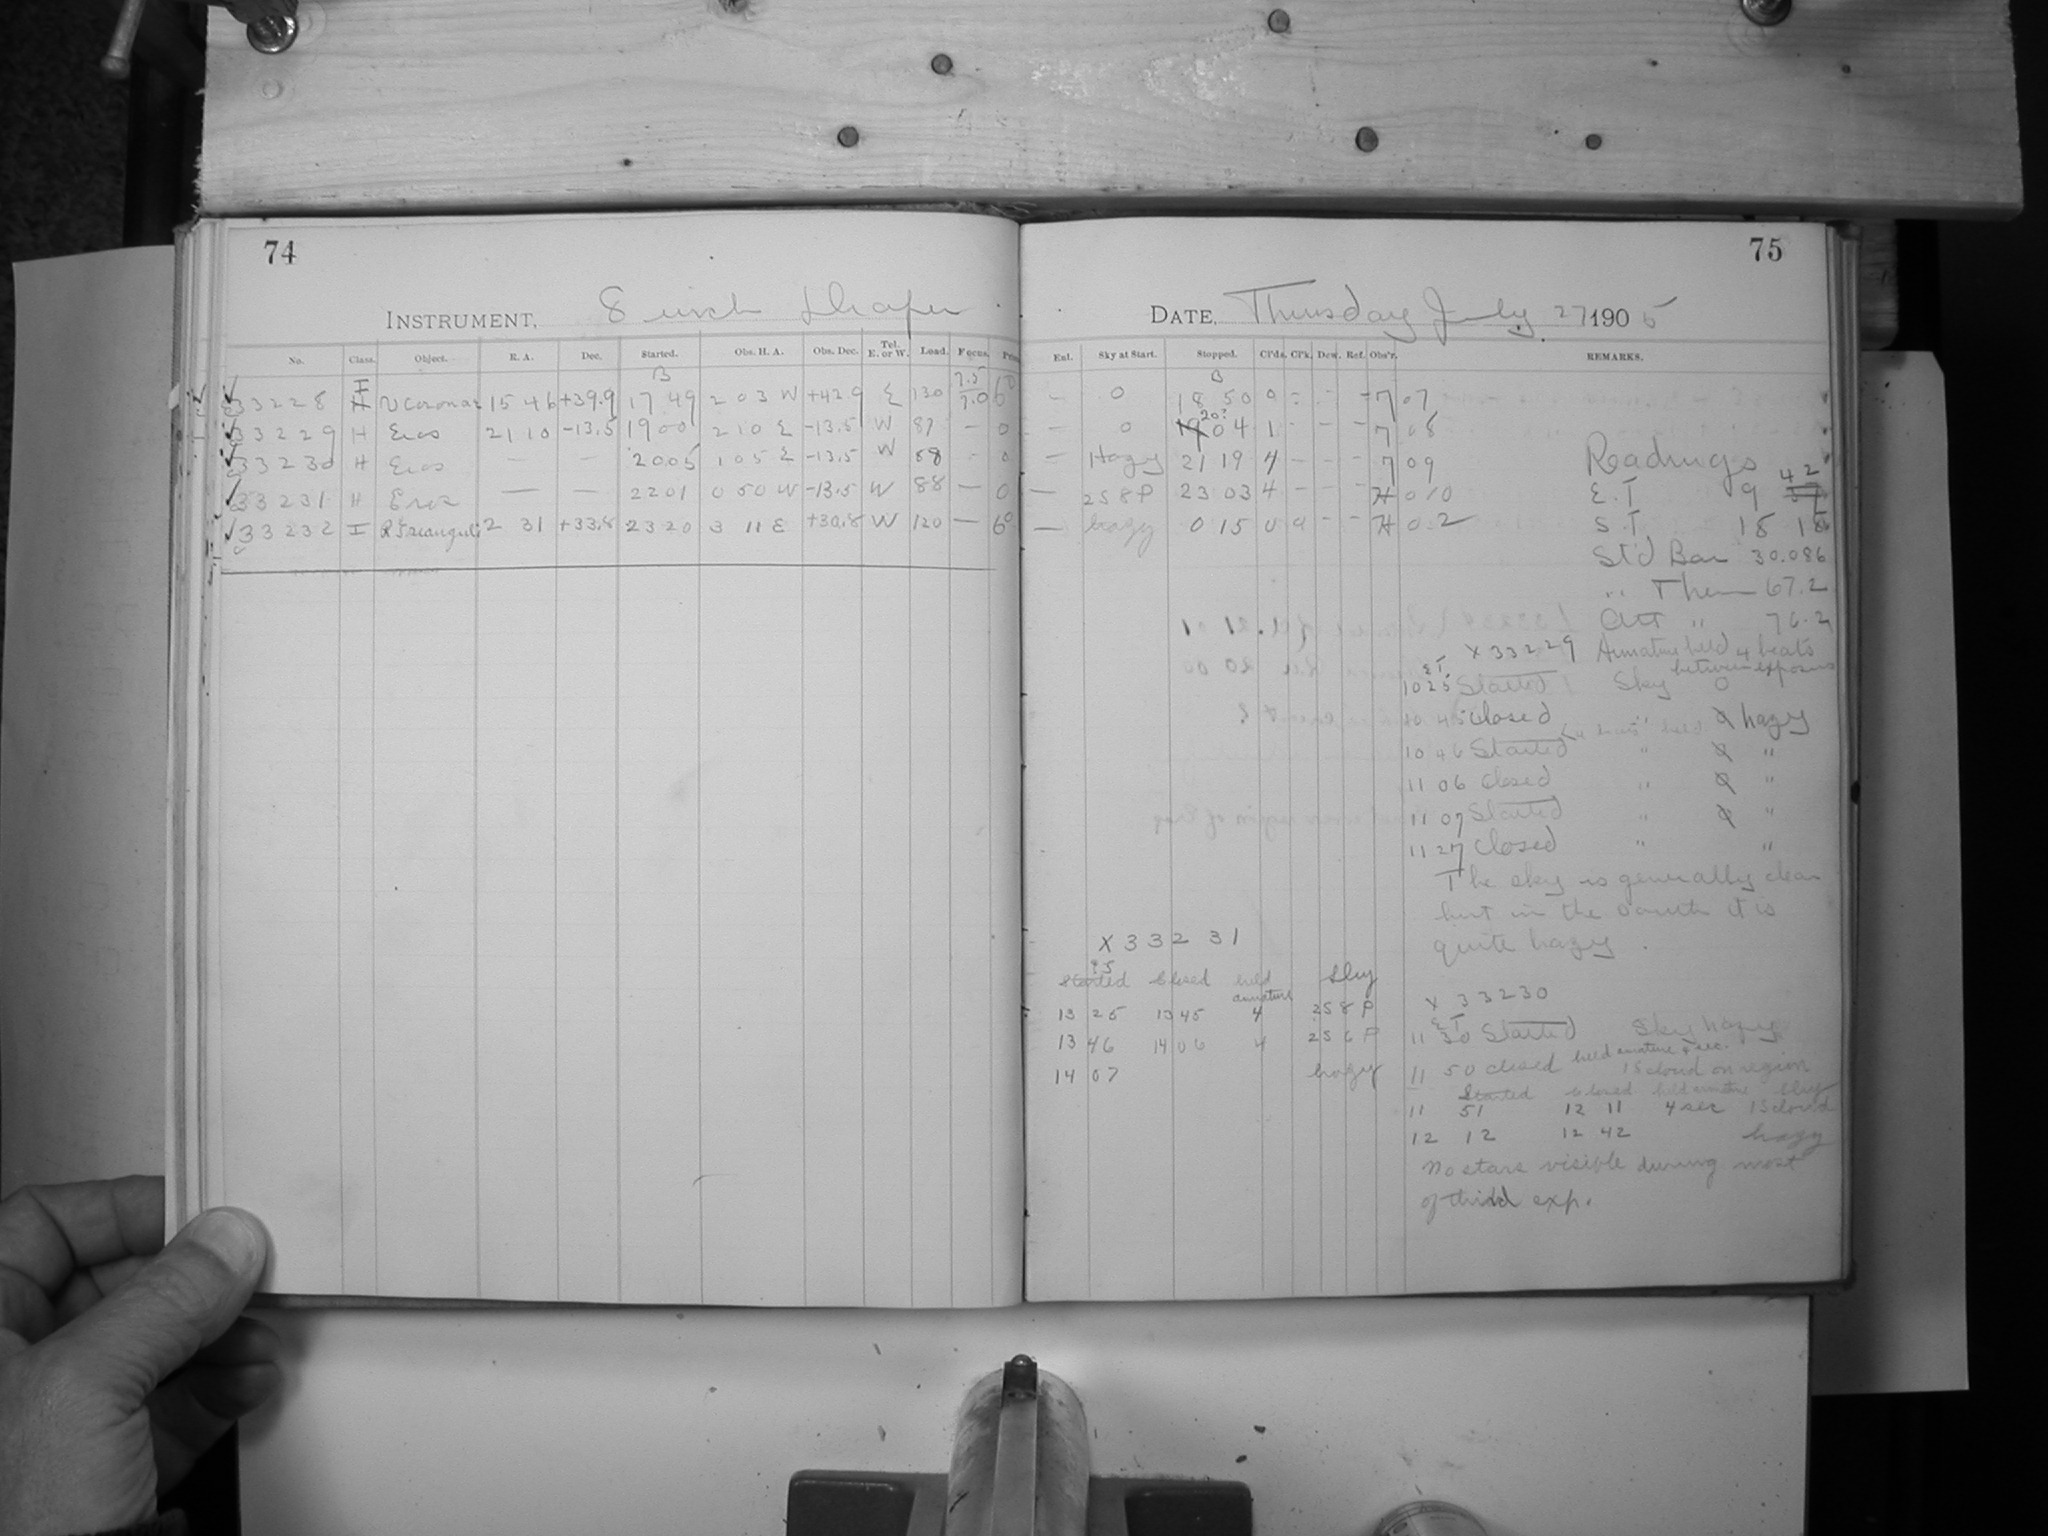 74
INSTRUMENT, 8 inch Draper
No. Class. Object. R. A. Dec. Started. Obs. H. A. Obs. Dec. Tel. E. or W. Load. Focus.
B
I 7.5
33228 H V Coronae 15 46 +39.9 17 49 2 03 W +42.9 E 130 7.0 60
33229 H Eros 21 10 -13.5 19 00 2 10 E -13.5 W 87 - 0
33230 H Eros - - 20 05 1 05 E -13.5 W 88 - 0
33231 H Eros - - 22 01 0 50 W -13.5 W 88 - 0
33232 I R Trianguli 2 31 +33.8 23 20 3 11 E +30.8 W 120 - 60
75
DATE, Thursday July 27 1905
Ent. Sky at Start. Stopped. Cl'ds. Cl'k. Dew. Ref. Obs'r. REMARKS.
B
- 0 18 50 0 - - - 7 07
20?
- 0 19 04 1 - - - 7 08
- Hazy 21 19 4 - - - 7 09
- 258P 23 03 4 - - - H 010
- hazy 0 15 0 a - - H 0.2
Readings
42
E.T 9
S.T 18 18
St'd Bar 30.086
" Ther 67.2
Att " 76.2
X 33229 Armature held 4 beats
between exposures
E T
10 25 Started Sky 0
10 45 closed " hazy
4 beats held
10 46 Started " "
11 06 closed " "
11 07 Started " "
11 27 closed " "
The sky is generally clear
but in the south it is
quite hazy.
X 33231
Started Closed held armature Sky
13 25 13 45 4 258P
13 46 14 06 4 256P
14 07 hazy
X 33230
E T
11 30 Started Sky hazy
11 50 closed held armature 4 sec.
15 cloud on region
Started Closed held armature Sky
11 51 12 11 4 sec 15 cloud
12 12 12 42 hazy
No stars visible during most
of third exp.